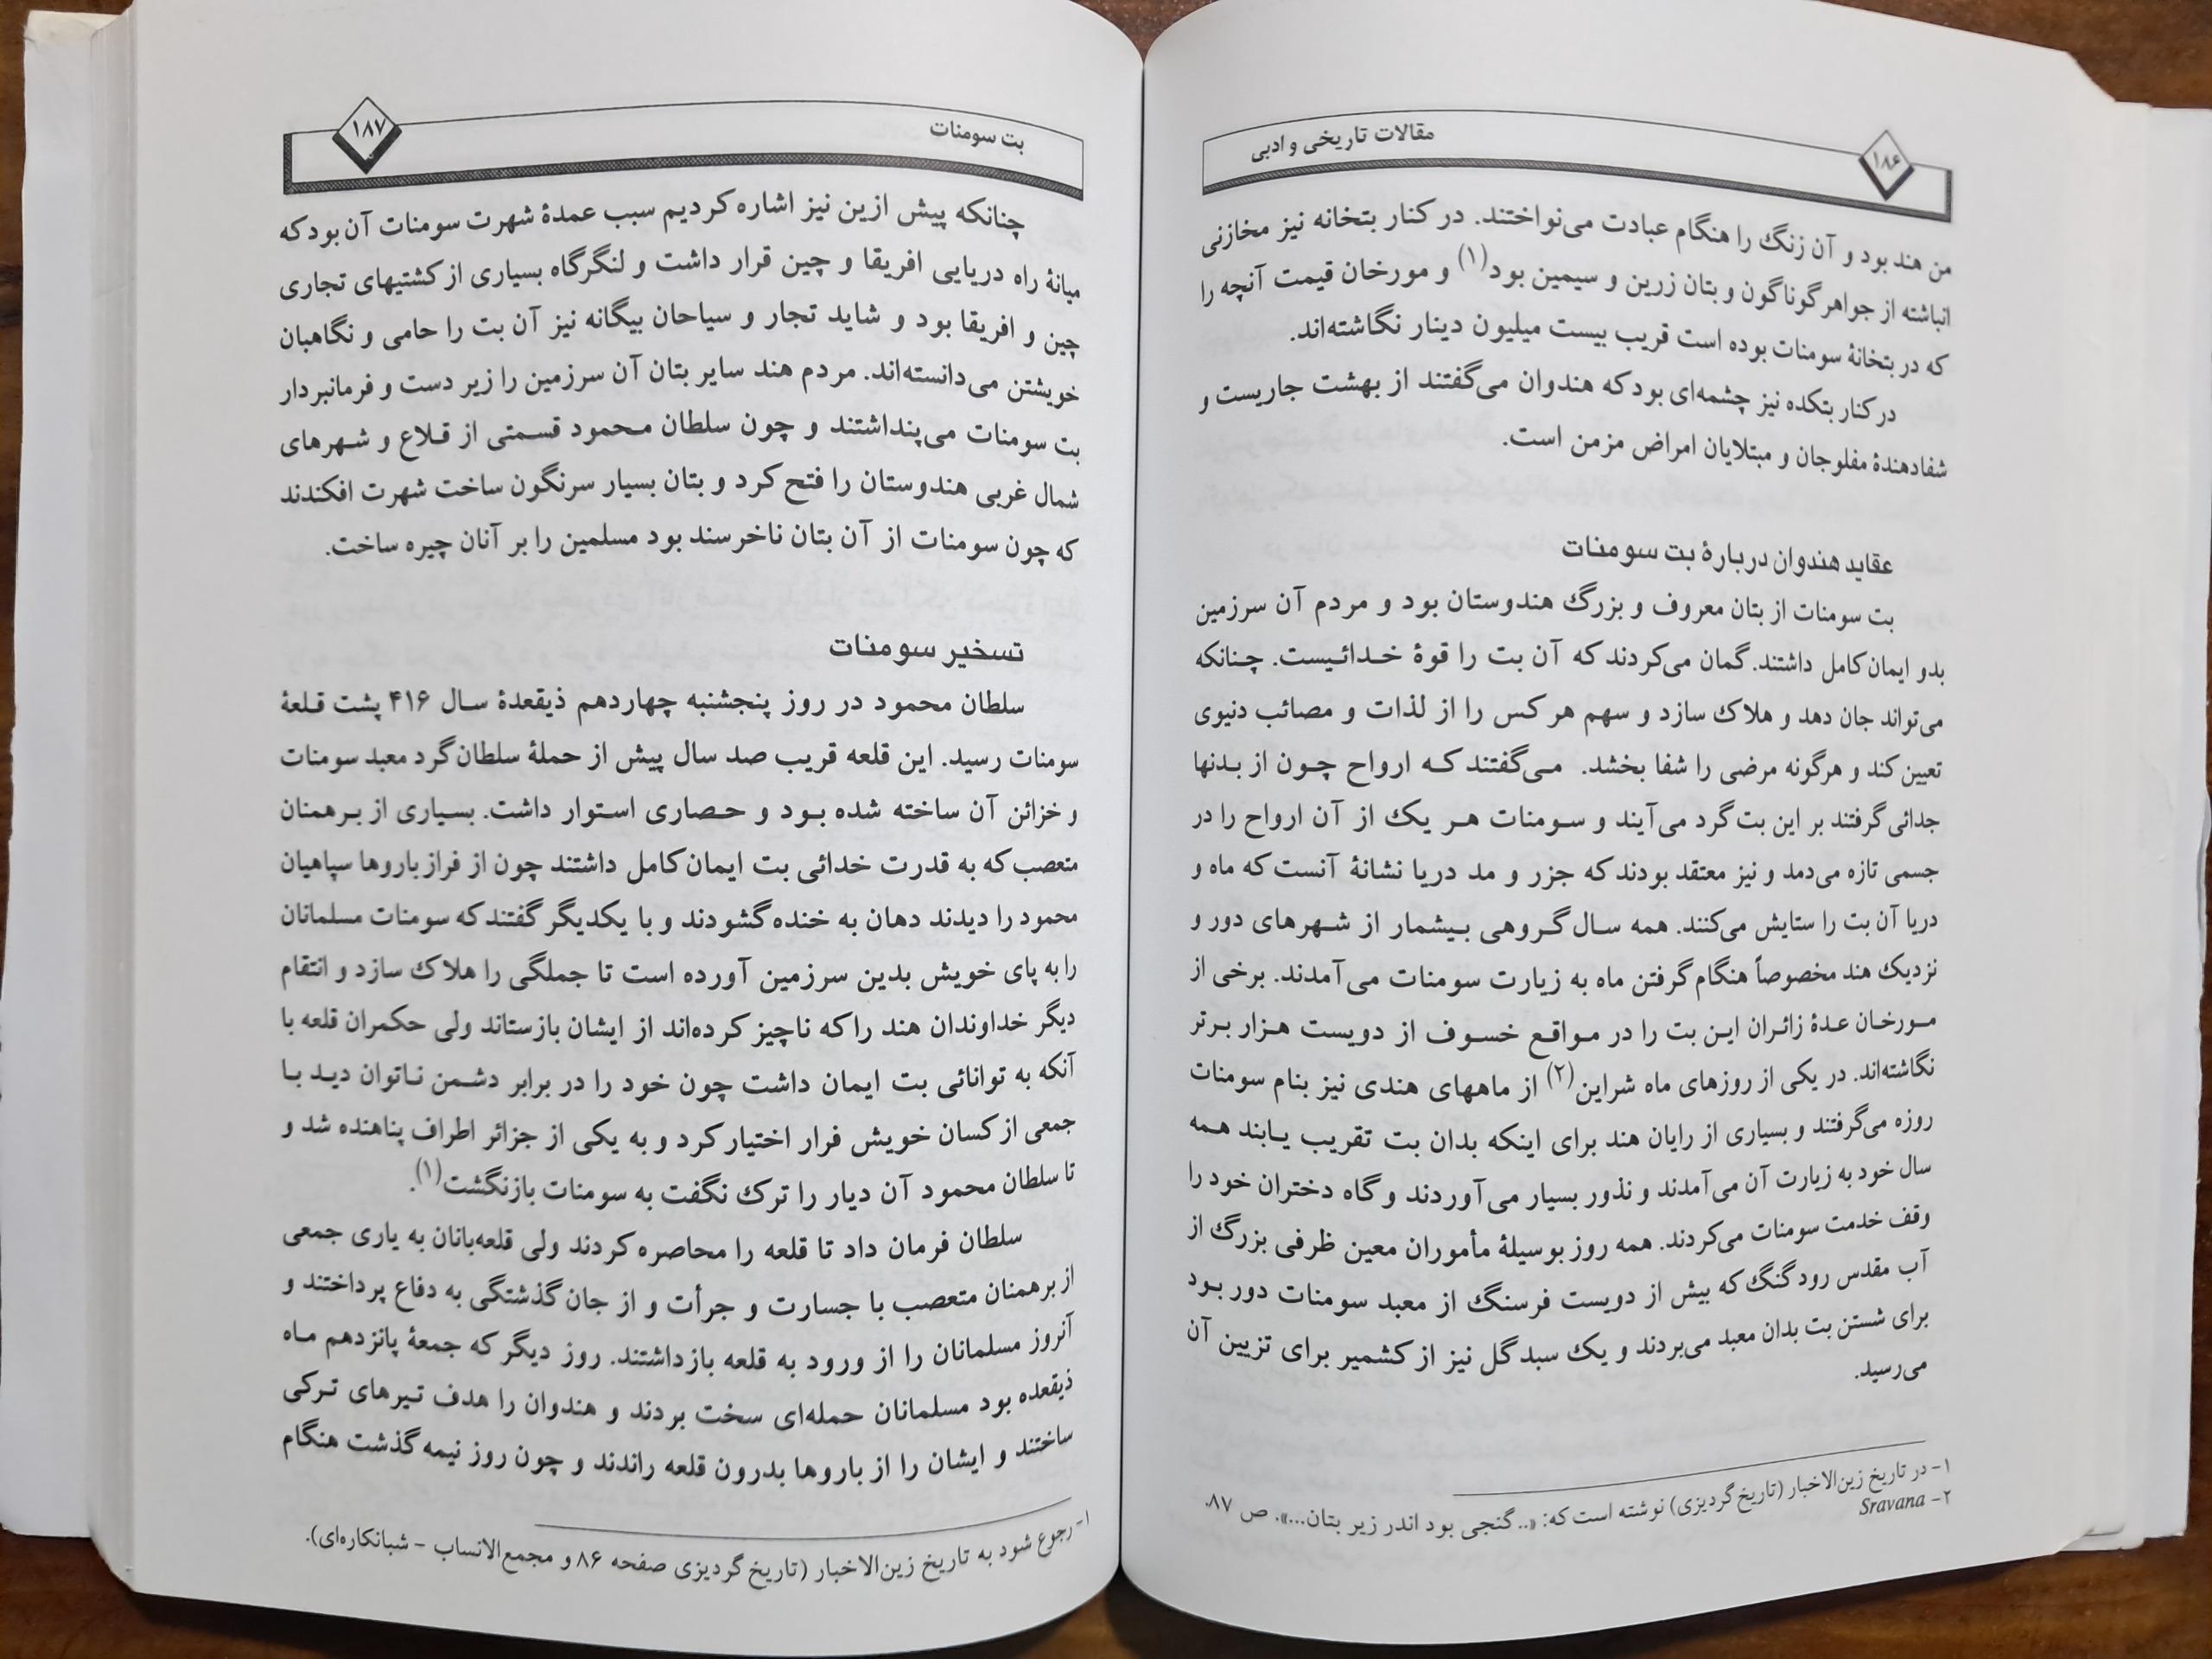 ۱۸۶
مقالات تاریخی و ادبی
من هند بود و آن زنگ را هنگام عبادت می‌نواختند. در کنار بتخانه نیز مخازنی
انباشته از جواهر گوناگون و بتان زرین و سیمین بود(۱) و مورخان قیمت آنچه را
که در بتخانهٔ سومنات بوده است قریب بیست میلیون دینار نگاشته‌اند.
در کنار بتکده نیز چشمه‌ای بود که هندوان می‌گفتند از بهشت جاریست و
شفادهندهٔ مفلوجان و مبتلایان امراض مزمن است.
عقاید هندوان دربارهٔ بت سومنات
بت سومنات از بتان معروف و بزرگ هندوستان بود و مردم آن سرزمین
بدو ایمان کامل داشتند. گمان می‌کردند که آن بت را قوهٔ خدائیست. چنانکه
می‌تواند جان دهد و هلاک سازد و سهم هر کس را از لذات و مصائب دنیوی
تعیین کند و هرگونه مرضی را شفا بخشد. می‌گفتند که ارواح چون از بدنها
جدائی گرفتند بر این بت گرد می‌آیند و سومنات هر یک از آن ارواح را در
جسمی تازه می‌دمد و نیز معتقد بودند که جزر و مد دریا نشانهٔ آنست که ماه و
دریا آن بت را ستایش می‌کنند. همه سال گروهی بیشمار از شهرهای دور و
نزدیک هند مخصوصاً هنگام گرفتن ماه به زیارت سومنات می‌آمدند. برخی از
مورخان عدهٔ زائران این بت را در مواقع خسوف از دویست هزار برتر
نگاشته‌اند. در یکی از روزهای ماه شراین(۲) از ماههای هندی نیز بنام سومنات
روزه می‌گرفتند و بسیاری از رایان هند برای اینکه بدان بت تقریب یابند همه
سال خود به زیارت آن می‌آمدند و نذور بسیار می‌آوردند و گاه دختران خود را
وقف خدمت سومنات می‌کردند. همه روز بوسیلهٔ مأموران معین ظرفی بزرگ از
آب مقدس رود گنگ که بیش از دویست فرسنگ از معبد سومنات دور بود
برای شستن بت بدان معبد می‌بردند و یک سبد گل نیز از کشمیر برای تزیین آن
می‌رسید.
۱- در تاریخ زین‌الاخبار (تاریخ گردیزی) نوشته است که: «.. گنجی بود اندر زیر بتان...». ص ۸۷.
۲- Sravana
بت سومنات
۱۸۷
چنانکه پیش ازین نیز اشاره کردیم سبب عمدهٔ شهرت سومنات آن بود که
میانهٔ راه دریایی افریقا و چین قرار داشت و لنگرگاه بسیاری از کشتیهای تجاری
چین و افریقا بود و شاید تجار و سیاحان بیگانه نیز آن بت را حامی و نگاهبان
خویشتن می‌دانسته‌اند. مردم هند سایر بتان آن سرزمین را زیر دست و فرمانبردار
بت سومنات می‌پنداشتند و چون سلطان محمود قسمتی از قلاع و شهرهای
شمال غربی هندوستان را فتح کرد و بتان بسیار سرنگون ساخت شهرت افکندند
که چون سومنات از آن بتان ناخرسند بود مسلمین را بر آنان چیره ساخت.
تسخیر سومنات
سلطان محمود در روز پنجشنبه چهاردهم ذیقعدهٔ سال ۴۱۶ پشت قلعهٔ
سومنات رسید. این قلعه قریب صد سال پیش از حملهٔ سلطان گرد معبد سومنات
و خزائن آن ساخته شده بود و حصاری استوار داشت. بسیاری از برهمنان
متعصب که به قدرت خدائی بت ایمان کامل داشتند چون از فراز باروها سپاهیان
محمود را دیدند دهان به خنده گشودند و با یکدیگر گفتند که سومنات مسلمانان
را به پای خویش بدین سرزمین آورده است تا جملگی را هلاک سازد و انتقام
دیگر خداوندان هند را که ناچیز کرده‌اند از ایشان بازستاند ولی حکمران قلعه با
آنکه به توانائی بت ایمان داشت چون خود را در برابر دشمن ناتوان دید با
جمعی از کسان خویش فرار اختیار کرد و به یکی از جزائر اطراف پناهنده شد و
تا سلطان محمود آن دیار را ترک نگفت به سومنات بازنگشت(۱).
سلطان فرمان داد تا قلعه را محاصره کردند ولی قلعه‌بانان به یاری جمعی
از برهمنان متعصب با جسارت و جرأت و از جان گذشتگی به دفاع پرداختند و
آنروز مسلمانان را از ورود به قلعه بازداشتند. روز دیگر که جمعهٔ پانزدهم ماه
ذیقعده بود مسلمانان حمله‌ای سخت بردند و هندوان را هدف تیرهای ترکی
ساختند و ایشان را از باروها بدرون قلعه راندند و چون روز نیمه گذشت هنگام
۱- رجوع شود به تاریخ زین‌الاخبار (تاریخ گردیزی صفحه ۸۶ و مجمع‌الانساب - شبانکاره‌ای).